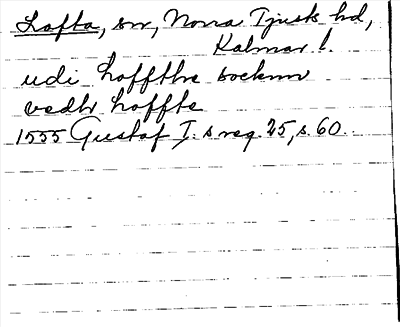 Lofta, sn, Norra Tjusts hd,
Kalmar l.
udi Loffthe socknn
vedh Loffte
1555 Gustaf I:s reg. 25, s. 60.